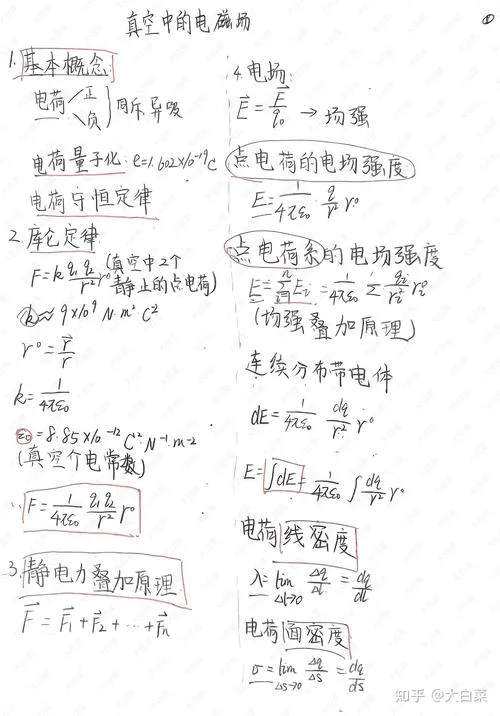 真空中的电磁场
①
1. 基本概念
电荷 < 正 负 同斥异吸
电荷量子化. e=1.602×10⁻¹⁹C
电荷守恒定律
2. 库仑定律
F=k q₁q₂/r² r° (真空中2个静止的点电荷)
k≈9×10⁹ N·m²·C²
r°= r⃗/r
k= 1/4πε₀
ε₀=8.85×10⁻¹² C²·N⁻¹·m⁻²
(真空介电常数)
F= 1/4πε₀ q₁q₂/r² r°
3. 静电力叠加原理
F⃗ = F⃗₁ + F⃗₂ + ··· + F⃗n
4. 电场:
E⃗ = F⃗/q₀ → 场强
点电荷的电场强度
E= 1/4πε₀ q/r² r°
点电荷系的电场强度
E= ⁿΣᵢ₌₁ Eᵢ = 1/4πε₀ Σ qᵢ/rᵢ² rᵢ°
(场强叠加原理)
连续分布带电体
dE= 1/4πε₀ dq/r² r°
E=∫dE= 1/4πε₀ ∫ dq/r² r°
电荷线密度
λ= lim Δl→0 Δq/Δl = dq/dl
电荷面密度
σ= lim Δs→0 Δq/Δs = dq/ds
知乎 @大白菜